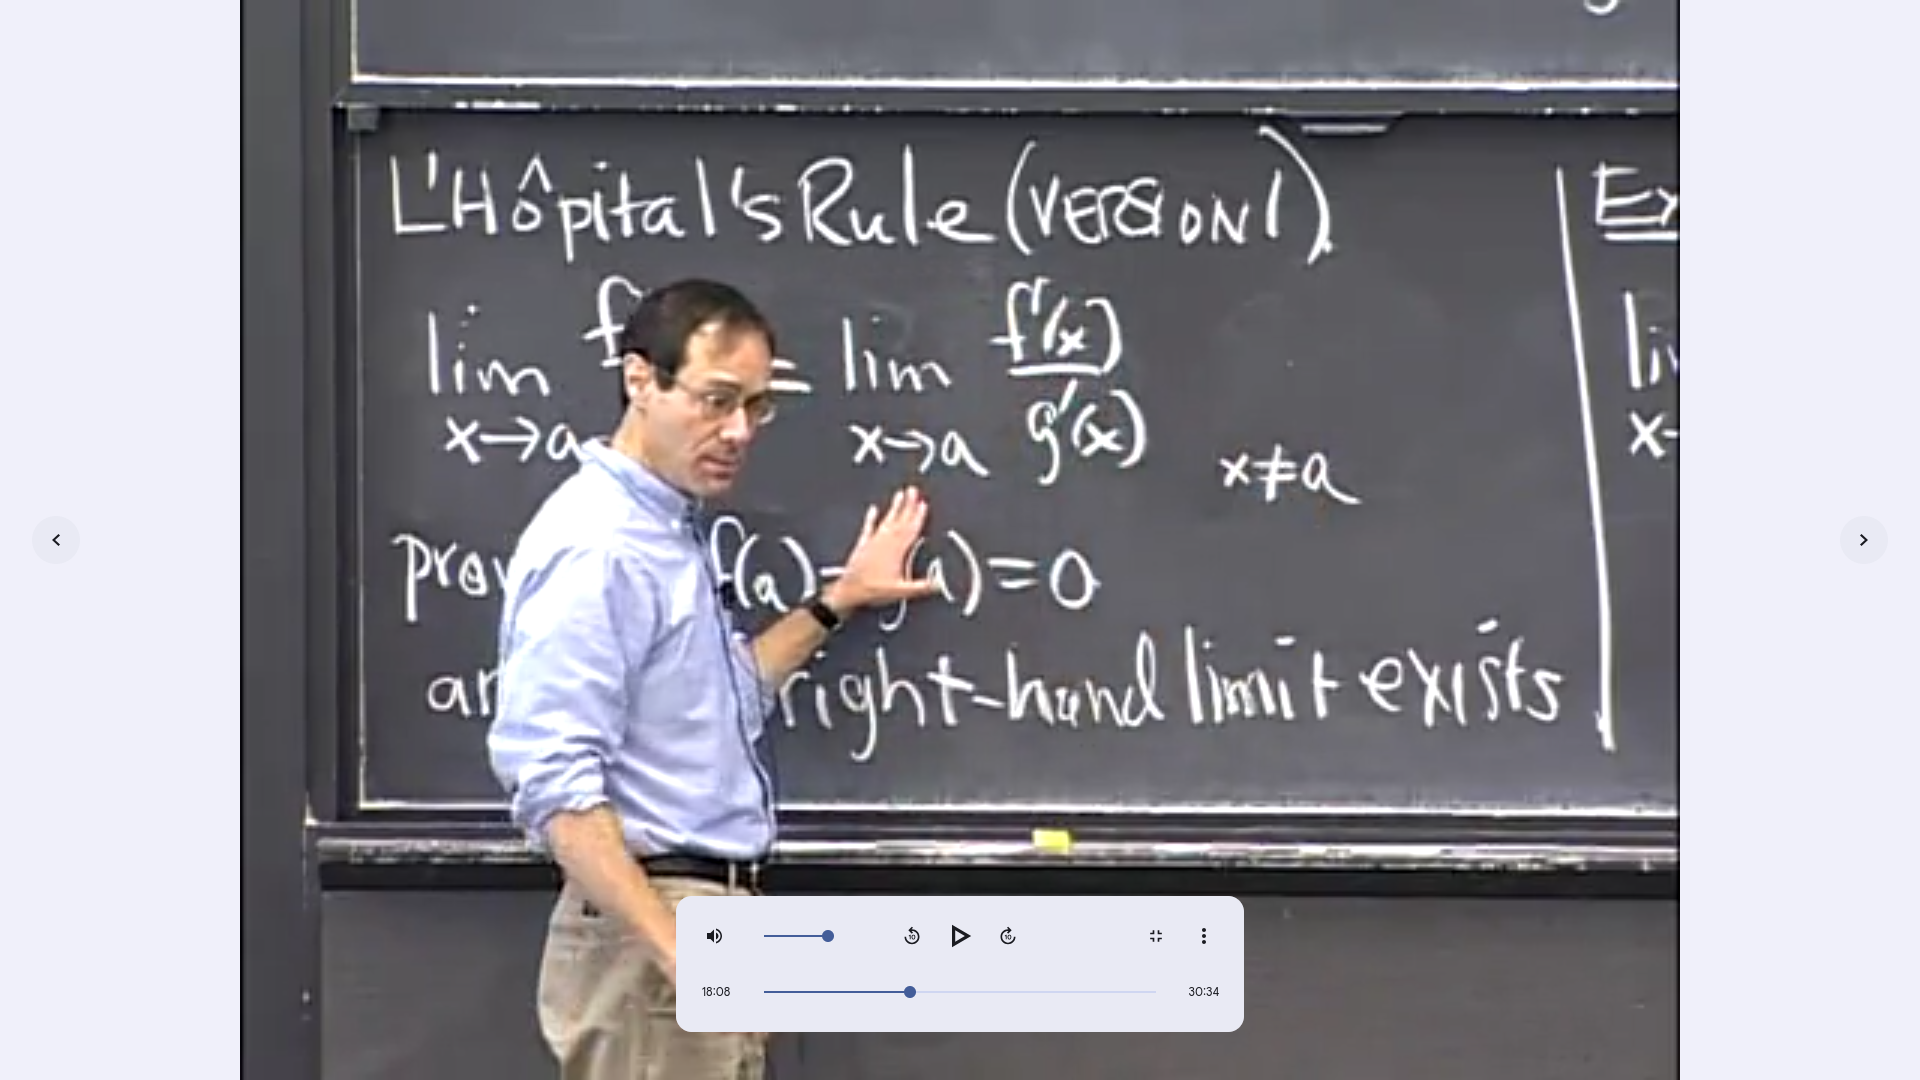 L'Hôpital's Rule (VERSION 1)
lim x→a f = lim x→a f'(x)/g'(x) x≠a
f(a) = (a) = 0
right-hand limit exists
18:08
30:34